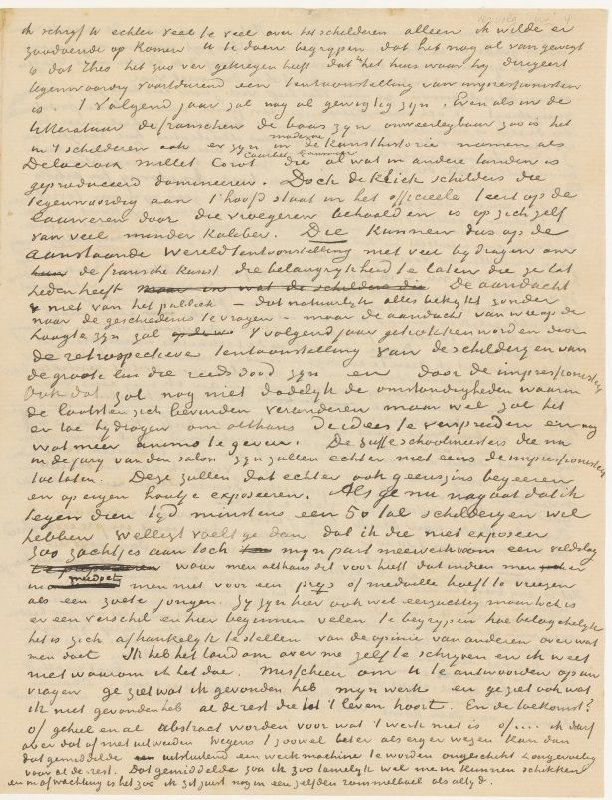 ik schrijf U echter veel te veel over het schilderen alleen ik wilde er
zoodoende op komen U te doen begrijpen dat het nog al van gewigt
is dat Theo het zoo ver gekregen heeft dat in het huis waar hij dirigeert
tegenwoordig voortdurend een tentoonstelling van impressionisten
is. 't Volgend jaar zal nog al gewigtig zijn. Even als in de
litteratuur de franschen de baas zijn onweerlegbaar zoo is het
in 't schilderen ook er zijn in de moderne kunsthistorie namen als
Delacroix Millet Corot Courbet Daumier die al wat in andere landen is
geproduceerd domineeren. Doch de kliek schilders die
tegenwoordig aan 't hoofd staat in het officieele teert op de
lauweren door die vroegeren behaald en is op zich zelf
van veel minder kaliber. Die kunnen dus op de
aanstaande Wereldtentoonstelling niet veel bijdragen om
de fransche kunst die belangrijkheid te laten die ze tot
heden heeft de aandacht
niet van het publiek – dat natuurlijk alles bekijkt zonder
naar de geschiedenis te vragen – maar de aandacht van wie op de
hoogte zijn zal 't volgend jaar getrokken worden door
de retrospectieve tentoonstelling van de schilderijen van
de groote lui die reeds dood zijn en door de impressionisten
Ook dat zal nog niet dadelijk de omstandigheden waarin
de laatsten zich bevinden veranderen maar wel zal het
er toe bijdragen om althans de idees te verspreiden en nog
wat meer animo te geven. De suffe schoolmeesters die nu
in de jury van den salon zijn zullen echter niet eens de impressionisten
toelaten. Deze zullen dat echter ook geenszins begeeren
en op eigen houtje exposeeren. Als ge nu nagaat dat ik
tegen dien tijd minstens een 50 tal schilderijen wil
hebben welligt voelt ge dan dat ik die niet exposeer
zoo zachtjes aan toch mijn part meewerk om een veldslag
waar men althans dit voor heeft dat indien men er
meedoet men niet voor een prijs of medaille hoeft te vreezen
als een zoete jongen. Zij zijn hier ook wel eerzuchtig maar toch is
er een verschil en hier beginnen velen te begrijpen hoe belagchelijk
het is zich afhankelijk te stellen van de opinie van anderen over wat
men doet Ik heb het land om over me zelf te schrijven en ik weet
niet waarom ik het doe. Misschien om U te antwoorden op uw
vragen ge ziet wat ik gevonden heb mijn werk en ge ziet ook wat
ik niet gevonden heb al de rest die tot 't leven hoort. En de toekomst?
of geheel en al abstract worden voor wat 't werk niet is of.... ik durf
over dat of niet uitweiden wegens 't zoowel beter als erger wezen kan dan
dat gemiddelde uitsluitend een werkmachine te worden ongeschikt & ongevoelig
voor al de rest. Dat gemiddelde zou ik zoo tamelijk wel me in kunnen schikken
en in afwachting is het zoo ik zit juist nog in een zelfden rommelboel als altijd.